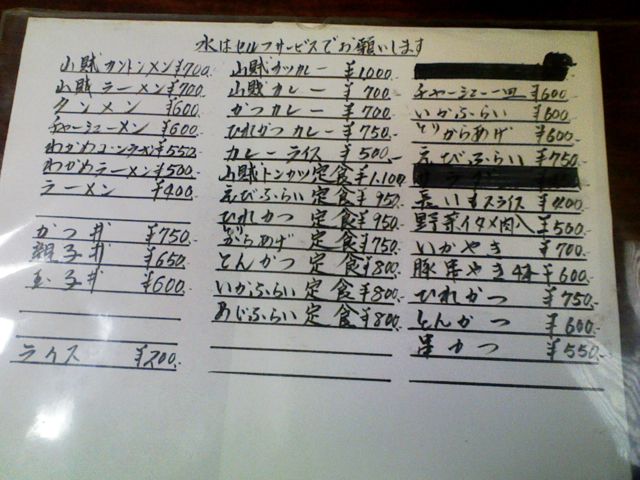 水はセルフサービスでお願いします
山賊カントンメン ¥700.
山賊ラーメン ¥700
タンメン ¥600
チャーシューメン ¥600
わかめコーンラーメン ¥550
わかめラーメン ¥500
ラーメン ¥400
かつ丼 ¥750.
親子丼 ¥650
玉子丼 ¥600
ライス ¥200.
山賊カツカレー ¥1000
山賊カレー ¥700
かつカレー ¥700
ひれかつカレー ¥750.
カレーライス ¥500
山賊トンカツ定食 ¥1.100
えびふらい定食 ¥950
ひれかつ定食 ¥950
からあげ定食 ¥750
とんかつ定食 ¥800.
いかふらい定食 ¥800
あじふらい定食 ¥800
チャーシュー皿 ¥600
いかふらい ¥600
とりからあげ ¥600
えびふらい ¥750
長いもスライス ¥400
野菜イタメ肉入 ¥500
いかやき ¥700
豚串やき4本 ¥600
ひれかつ ¥750
とんかつ ¥600
串かつ ¥550